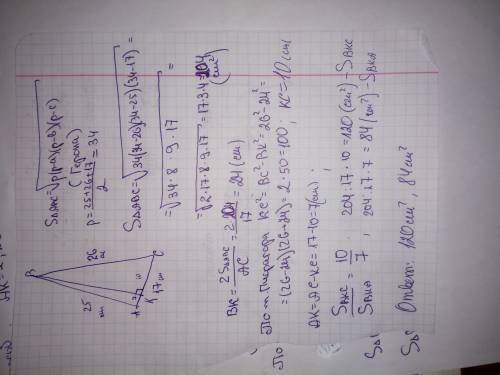 AK=
S△ABC=√p(p-a)(p-b)(p-c)
(Герона)
p=25+26+17/2=34
S△ABC=√34(34-26)(34-25)(34-17)=
=√34·8·9·17 =
=√2·17·8·9·17=17·3·4=204
(cm²)
B
25
cm
26
cm
A
K
17cm
C
BK=2S△ABC/AC=2·204/17=24(cm)
По т. Пифагора KC²=BC²-BK²=26²-24²=
=(26-24)(26+24)=2·50=100; KC=10cm
AK=AC-KC=17-10=7(cm);
S BKC/S BKA=10/7; 204:17·10=120(cm²)-S BKC
204:17·7=84(cm²)-S BKA
Ответ: 120cm², 84cm²